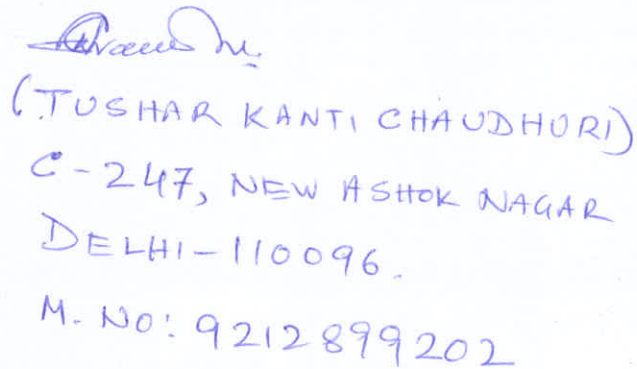 (TUSHAR KANTI CHAUDHURI)
C-247, NEW ASHOK NAGAR
DELHI-110096.
M. NO: 9212899202